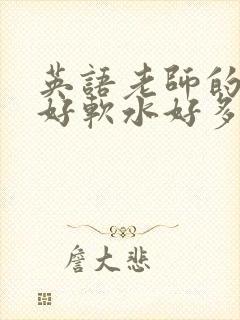 英語老師的
好軟水好多
詹大悲